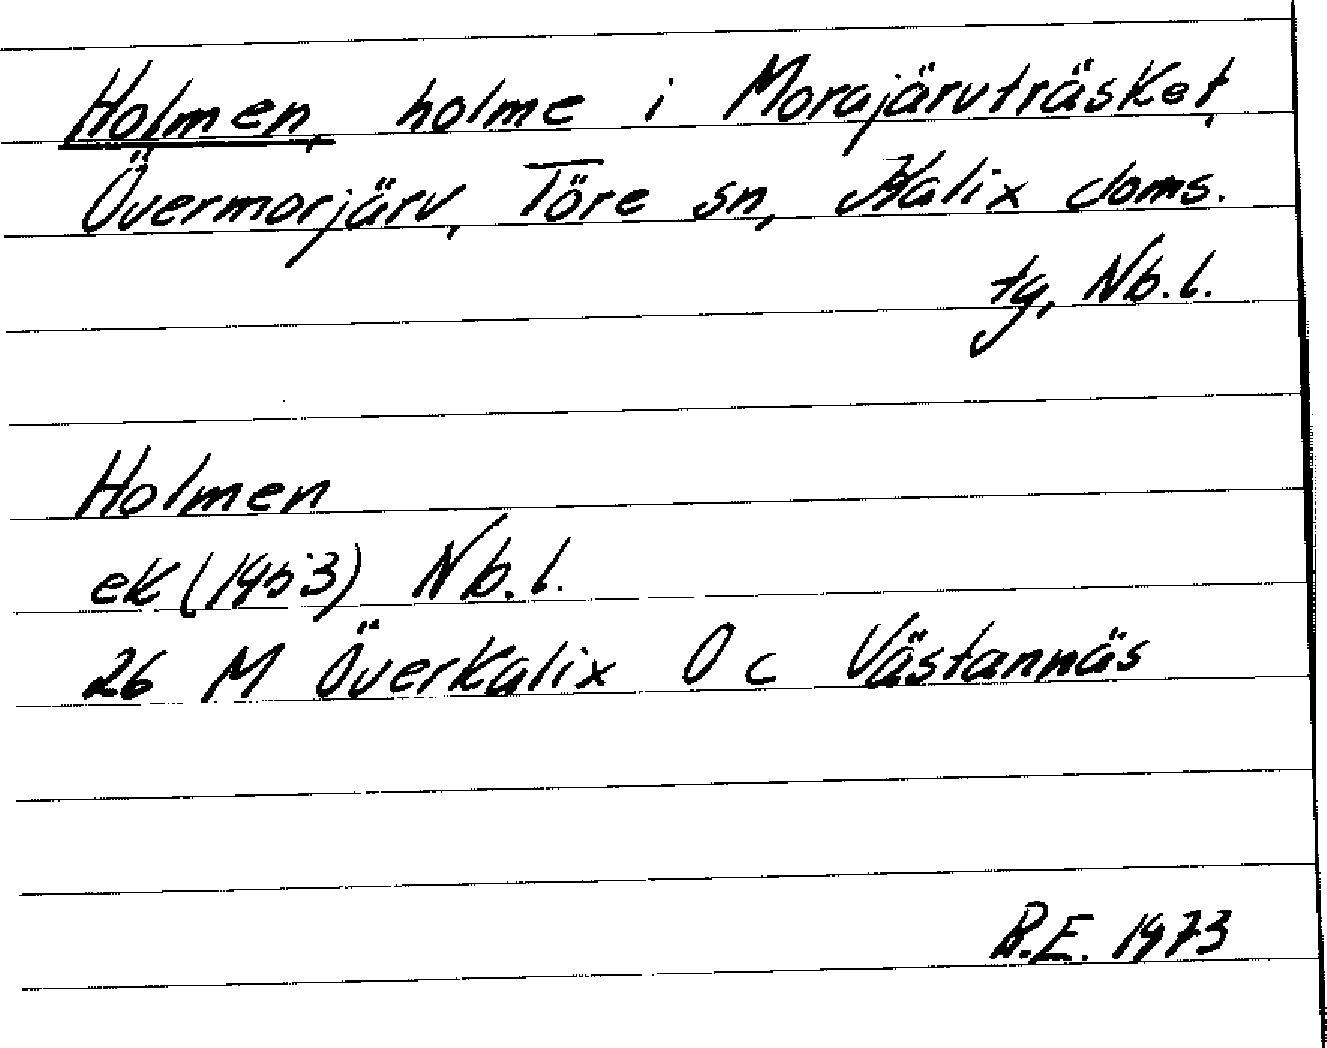 Holmen, holme i Morajärvträsket,
Övermorjärv, Töre sn, Kalix doms.
tg, Nb.l.
Holmen
ek (1953) Nb.l.
26 M Överkalix O c Västannäs
R.E. 1973